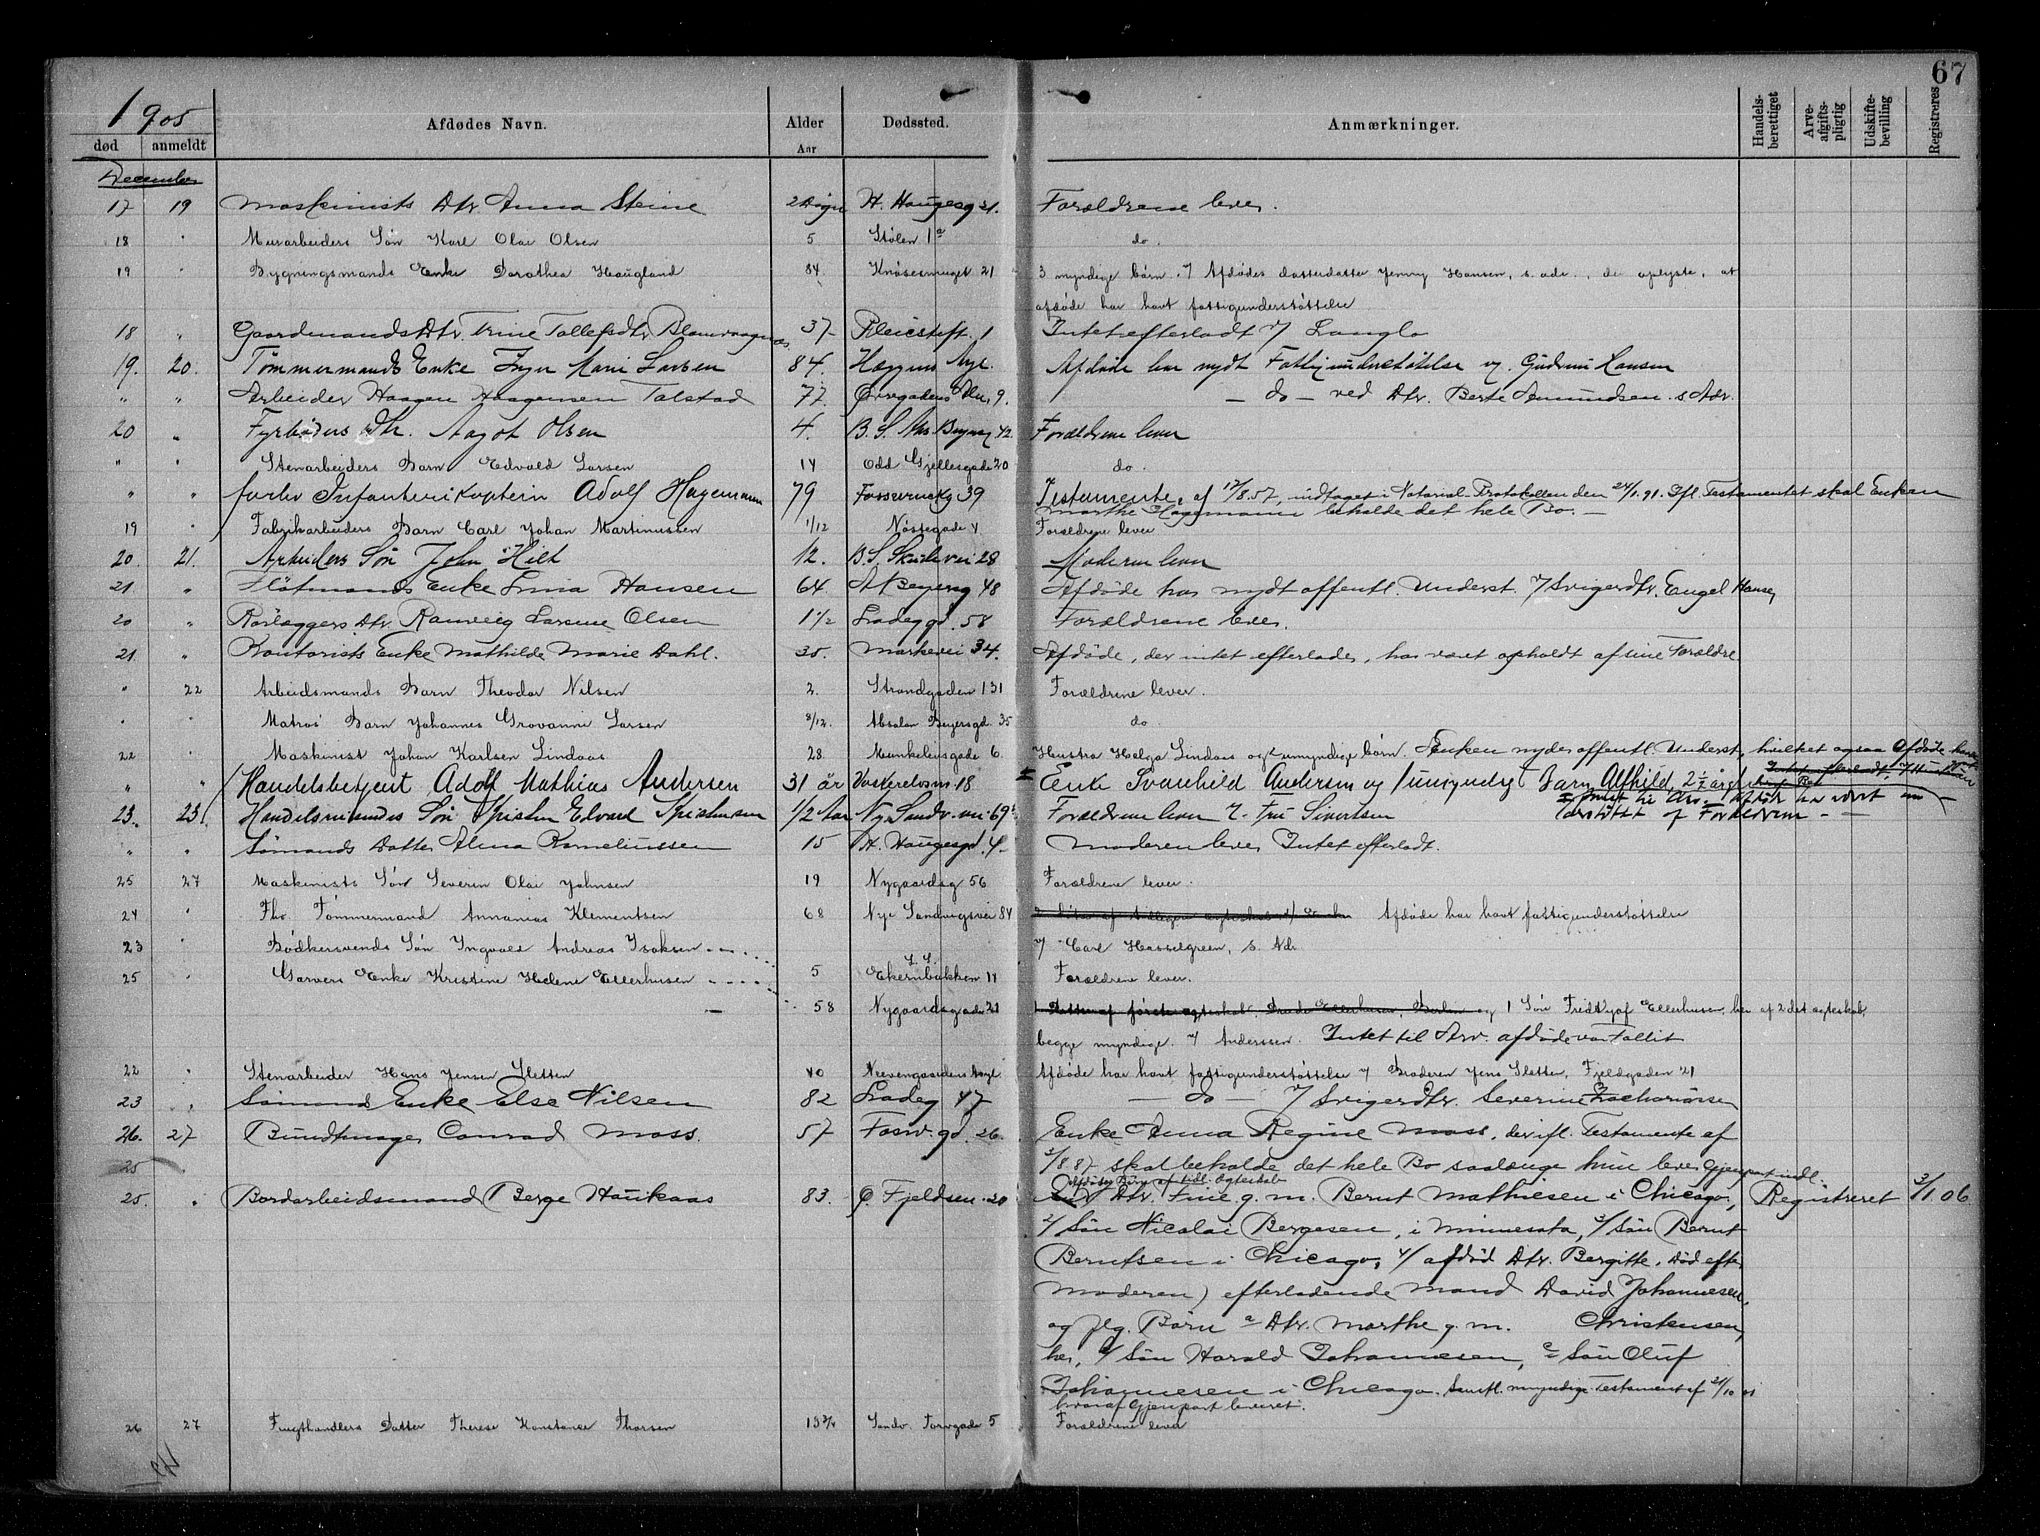 67
1905
død anmeldt Afdødes Navn. Alder Aar Dødssted. Anmærkninger. Handels-berettiget Arve-afgifts-pligtig Udskifte-bevilling Registreres
December
17 19 Maskinists Dtr. Anna Steine 2 Døgn H. Haugesg 21. Forældrene lever.
18 " Murarbeiders Søn Karl Olai Olsen 5 Stølen 1a do.
19 " Bygningsmands Enke Dorothea Haugland 84 Knøsesmuget 21 3 myndige børn. v/ Afdødes datterdatter Jenny Hansen, s. adr., der oplyste, at
afdøde har havt fattigunderstøttelse
18 " Gaardmands Dtr. Trine Tollefsdtr. 37 Pleiestift. 1 Intet efterladt v/ Langlo
19. 20. Tømmermands Enke Inger Marie Larsen 84. Hæggens Asyl. Afdøde har nydt Fattigunderstøttelse v. Gudrun Hansen
" " Arbeider Haagen Haagensen Talstad 77. Øvregadens Alm. 9. — do — ved Dtr. Berte Amundsen s. Adr.
20 " Fyrbøders Dtr. Aagot Olsen 4. B. S. 42. Forældrene lever
" " Stenarbeiders Barn Edvald Larsen 14 Odd Gjellesgade 20 do.
" " forhv Infanterikaptein Adolf Hagemann 79 Fosswincksg 39 Testamente af 12/8.57, indtaget i Notarial-Protokollen den 24/1.91. Ifl. Testamentet skal Enken
Marthe Hagemann beholde det hele Bo. —
19 " Fabrikarbeiders Barn Carl Johan Martinussen 1/12 Nøstegade 4 Forældrene lever
20. 21. Arbeiders Søn John Hilt 12. B. S. Skulevei 28 Moderen lever
21 " Fløtmands Enke Lina Hansen 64. A Beyersg 48 Afdøde har nydt offentl. Underst. v/ Svigerdtr. Engel Hansen
20 " Rørlæggers Dtr. Ranveig Larsine Olsen 1 1/2 Ladegd. 58 Forældrene lever.
21 " Kontorists Enke Mathilde Marie Dahl. 30. Markevei 34. Afdøde, der intet efterlader, har været opholdt af sine Forældre
" 22 Arbeidsmands Barn Theodor Nilsen 2. Strandgaden 131 Forældrene lever.
" " Matros' Barn Johannes Giovanni Larsen 8/12. Absalon Beyersgd. 35 do
22 " Maskinist Johan Karlsen Lindaas 28. Munkebeksgade 6. Hustru Helga Lindaas og 2 umyndige børn. Enken nyder offentl. Underst., hvilket ogsaa Afdøde havde
" " Handelsbetjent Adolf Mathias Andersen 31 år Vaskerelvsm 18 Enke Svanhild Andersen og 1 umyndigt Barn Alfhild, 2 1/2 år
Intet til Arv. Afdøde har været un
derstøttet af Forældrene —
23. 23. Handelsreisendes Søn Kristen Edvard Kristensen 1/2 Aar Ny Sandv. vei 69 Forældrene lever v. Fru Sivertsen
" " Sømands Datter Alma Korneliussen 15 H. Haugesgd. 4 Moderen lever Intet efterladt.
25 27 Maskinists Søn Severin Olai Johnsen 19 Nygaardsg 56 Forældrene lever.
24 " Fhv. Tømmermand Annanias Klementsen 68 Nye Sandvigsvei 84 Afdøde har havt fattigunderstøttelse
v/ Carl Hasselgreen, s. Adr.
23 " Bødkersvends Søn Ingvald Andreas Isaksen 5 L. S. Ekernbakken 11 Forældrene lever.
25 " Garvers Enke Kristine Helene Ellerhusen 58 Nygaardsgaden 21 1 Datter af første egteskab, og 1 Søn Fredthjof Ellerhusen, her af 2det egteskab,
begge myndige. v/ Anderssen. Intet til Arv. afdøde var Fallit
22 " Stenarbeider Hans Jensen Sletten 40 Neevengaardens Asyl Afdøde har havt fattigunderstøttelse v/ Broderen Jens Sletten, Fjeldgaden 21
23 " Sømands Enke Else Nilsen 82 Ladeg 47 — do — v/ Svigerdtr. Severine Zachariassen
26. 27 Bundtmager Conrad Moss. 57 Fosw. gd. 26. Enke Anna Regine Moss, der ifl. Testamente af
25 3/8.87 skal beholde det hele Bo saalænge hun lever Gjenpart indl.
Afdødes Børn af tidl. Egteskab
25. " Bordarbeidsmand Berge Haukaas 83. Ø. Fjeldsm. 20 Dtr. Fine g. m. Bernt Mathiesen i Chicago, Registreret 3/1.06
2/ Søn Nicolai Bergesen, i Minnesota, 3/ Søn Bernt
Berntsen i Chicago, 4/ afdød Dtr. Bergitte, (død efter
Moderen) efterladende Mand David Johannesen,
og flg. Børn a Dtr. Marthe g. m. Christensen,
her, b/ Søn Harald Johannesen, c Søn Oluf
Johannesen i Chicago. Samtl. myndige. Testament af 21/10 01
hvoraf Gjenpart leveret.
26 27 Frugthandlers Datter Therese Konstanse Thorsen 13 3/4 Sandv. Torvgade 5 Forældrene lever